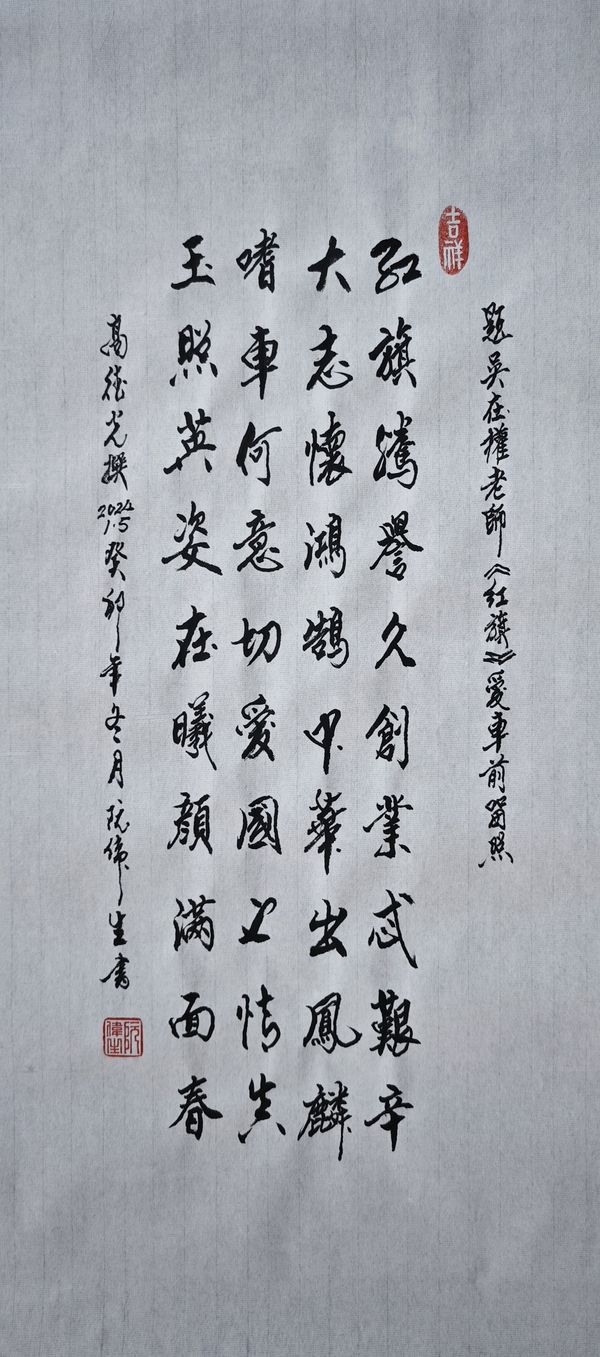 題吳在權老師《紅旗》愛車前留照
吉祥
紅旗騰譽久創業忒艱辛
大志懷鴻鵠中華出鳳麟
嗜車何意切愛國之情真
玉照英姿在曦顏滿面春
高德光撰2024.1.5癸卯年冬月阮偉生書
阮偉生